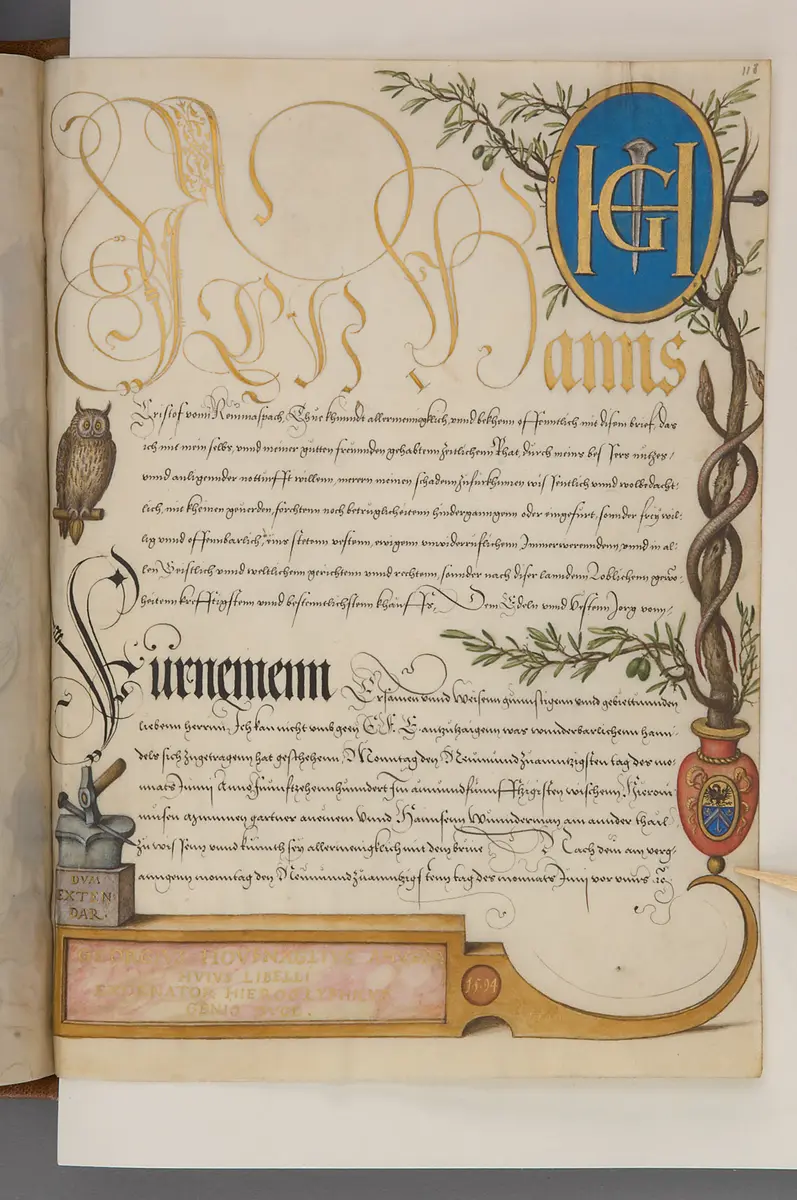 118
HGH
Ich Hanns
Cristof vonn Reinnaspach, Thue khundt allermenigklich, vnnd bekhenn offenntlich mit disem brief, das
ich mit mein selbs, vnnd meiner gutten freunnden gehabtem zeitlichem Rhat, durch meins bessers nutzes,
vnnd anligennder notturfft willenn, merern meinen schaden zufürkhumen wissentlich vnnd wolbedacht-
lich, mit kheinen geuerden, forchtenn noch betruglicheitenn hindergangenn oder eingefurt, sonnder frey wil-
lig vnnd offennbarlich, eins stetenn vestenn, ewigenn vnwiderruflichenn Immerwerenndenn, vnnd in al-
len Geistlich vnnd weltlichenn gerichtenn vnnd rechtenn, sonnder nach diser lanndenn Loblichenn gewo-
heitenn krefftigstenn vnnd bestenntlichstenn khauffs, Dem Edeln vnnd Vestenn Jorg vonn
Fürnemenn Ersamen vnnd Weisenn gunnstigenn vnnd gebiettunnden
liebenn herrnn, Ich kan nicht vmbgeen E. F. E. anzuzaigenn was wunnderbarlichenn hann-
dels sich zugetragenn hat geschehenn, Monntag den Neunundzuanntzigsten tag des mo-
nnats Junij Anno Funnftzehennhundert Im ainundfunfftzigisten wischenn Hieroni-
musen gartner anenem Vnnd Hainsenn Wunnderman am annder thail
Zu wissenn vnnd kunnth sey allermenigklich mit dem brine Nach dem am verg-
anngenn monntag den Neunundzuanntzigstenn tag des monnats Junij vor vnns
DVM
EXTEN
DAR.
GEORGIVS HOVFNAGLIVS
HVIVS LIBELLI
EXORNATOR HIEROGLYPHICVS
GENIO DVCE.
1594